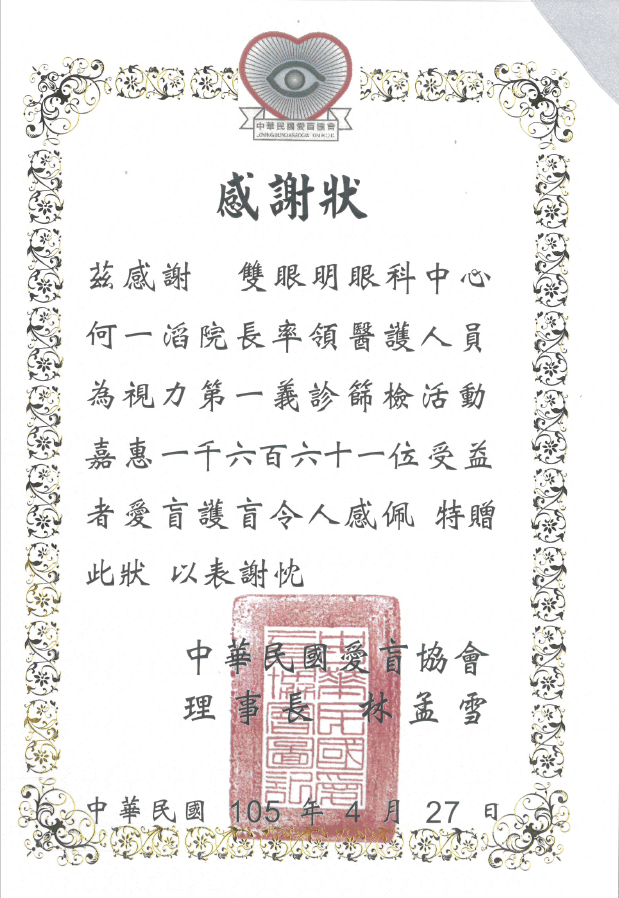 中華民國愛盲協會
感謝狀
茲感謝 雙眼明眼科中心
何一滔院長率領醫護人員
為視力第一義診篩檢活動
嘉惠一千六百六十一位受益
者愛盲護盲令人感佩 特贈
此狀 以表謝忱
中華民國愛盲協會
理事長 林孟雪
中華民國 105 年 4 月 27 日